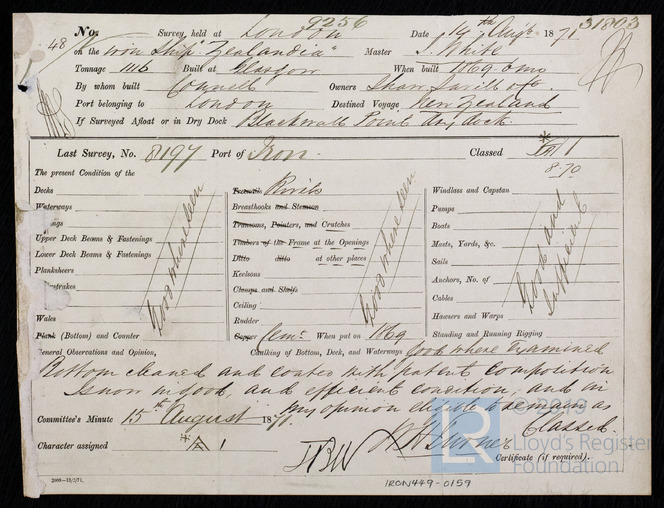 9256
31803
No. Survey, held at London Date 14th Augt 1871
48 on the Iron Ship "Zealandia" Master J. White
Tonnage 1116 Built at Glasgow When built 1869.
By whom built Connell Owners Shaw Savill & Co.
Port belonging to London Destined Voyage New Zealand
If Surveyed Afloat or in Dry Dock Blackwall Point dry dock.
Last Survey, No. 8197 Port of Iron. Classed A 1
8.70
The present Condition of the
Decks
Waterways
Upper Deck Beams & Fastenings
Lower Deck Beams & Fastenings
Planksheers
Wales
Plank (Bottom) and Counter
Good where seen
Treenails Rivets
Breasthooks and Stemson
Transoms, Pointers, and Crutches
Timbers of the Frame at the Openings
Ditto ditto at other places
Keelsons
Clamps and Shelfs
Ceiling
Rudder
Copper Cemt. When put on 1869
Good where seen
Windlass and Capstan
Pumps
Boats
Masts, Yards, &c.
Sails
Anchors, No. of
Cables
Hawsers and Warps
Standing and Running Rigging
Good and Sufficient
General Observations and Opinion, Caulking of Bottom, Deck, and Waterways good where examined
Bottom cleaned and coated with patent composition
Is now in good, and efficient condition, and in
my opinion eligible to remain as
Classed.
Committee's Minute 15th August 1871.
Character assigned A 1
Certificate (if required).
2000—13/2/71.
IRON449-0159
© 2019
LR
Lloyd's Register
Foundation